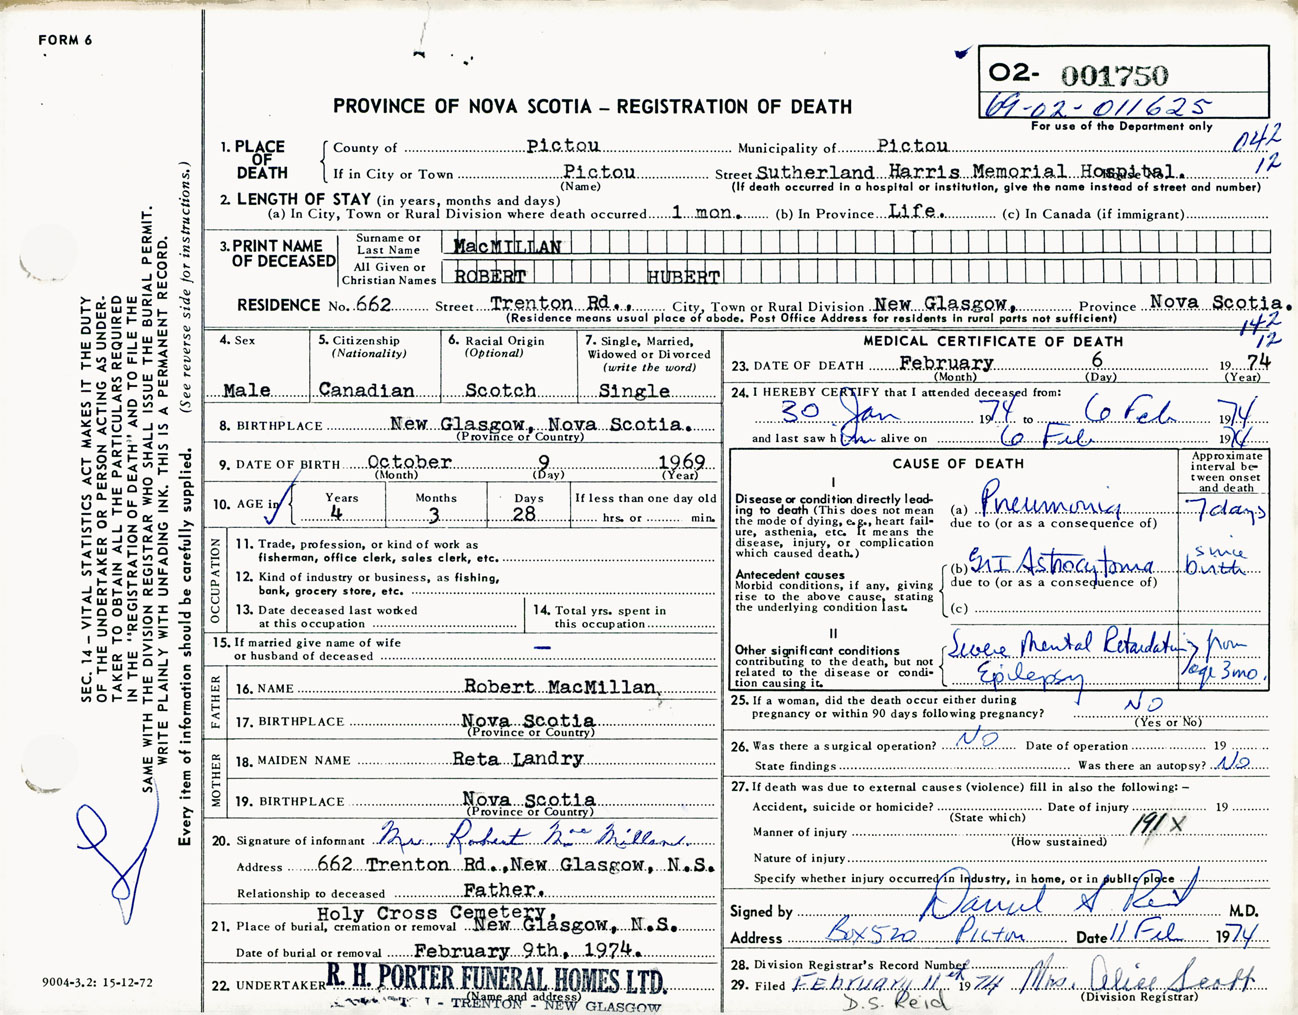 FORM 6
O2- 001750
69-02-011625
For use of the Department only
PROVINCE OF NOVA SCOTIA – REGISTRATION OF DEATH
042
12
1. PLACE OF DEATH
County of Pictou Municipality of Pictou
If in City or Town Pictou Street Sutherland Harris Memorial Hospital.
(Name) (If death occurred in a hospital or institution, give the name instead of street and number)
2. LENGTH OF STAY (in years, months and days)
(a) In City, Town or Rural Division where death occurred 1 mon. (b) In Province Life. (c) In Canada (if immigrant)
3. PRINT NAME OF DECEASED
Surname or Last Name MacMILLAN
All Given or Christian Names ROBERT HUBERT
RESIDENCE No. 662 Street Trenton Rd., City, Town or Rural Division New Glasgow, Province Nova Scotia.
(Residence means usual place of abode. Post Office Address for residents in rural parts not sufficient)
142
12
4. Sex
Male
5. Citizenship (Nationality)
Canadian
6. Racial Origin (Optional)
Scotch
7. Single, Married, Widowed or Divorced (write the word)
Single
8. BIRTHPLACE New Glasgow, Nova Scotia.
(Province or Country)
9. DATE OF BIRTH October 9 1969
(Month) (Day) (Year)
10. AGE in
Years Months Days If less than one day old
4 3 28 hrs. or min.
OCCUPATION
11. Trade, profession, or kind of work as fisherman, office clerk, sales clerk, etc.
12. Kind of industry or business, as fishing, bank, grocery store, etc.
13. Date deceased last worked at this occupation
14. Total yrs. spent in this occupation
15. If married give name of wife or husband of deceased —
FATHER
16. NAME Robert MacMillan
17. BIRTHPLACE Nova Scotia
(Province or Country)
MOTHER
18. MAIDEN NAME Reta Landry
19. BIRTHPLACE Nova Scotia
(Province or Country)
20. Signature of informant Mr. Robert MacMillan.
Address 662 Trenton Rd., New Glasgow, N.S.
Relationship to deceased Father.
Holy Cross Cemetery,
21. Place of burial, cremation or removal New Glasgow, N.S.
Date of burial or removal February 9th, 1974.
22. UNDERTAKER R. H. PORTER FUNERAL HOMES LTD.
(Name and address)
TRENTON - NEW GLASGOW
MEDICAL CERTIFICATE OF DEATH
23. DATE OF DEATH February 6 1974
(Month) (Day) (Year)
24. I HEREBY CERTIFY that I attended deceased from:
30 Jan 1974 to 6 Feb 1974
and last saw him alive on 6 Feb 1974
CAUSE OF DEATH
Approximate interval between onset and death
I
Disease or condition directly leading to death (This does not mean the mode of dying, e.g., heart failure, asthenia, etc. It means the disease, injury, or complication which caused death.)
(a) Pneumonia 7 days
due to (or as a consequence of)
Antecedent causes
Morbid conditions, if any, giving rise to the above cause, stating the underlying condition last.
(b) Gr I Astrocytoma since birth
due to (or as a consequence of)
(c)
II
Other significant conditions
contributing to the death, but not related to the disease or condition causing it.
Severe Mental Retardation from
Epilepsy age 3 mo.
25. If a woman, did the death occur either during pregnancy or within 90 days following pregnancy? NO
(Yes or No)
26. Was there a surgical operation? NO Date of operation 19
State findings Was there an autopsy? NO
27. If death was due to external causes (violence) fill in also the following: –
Accident, suicide or homicide? Date of injury 19
(State which)
Manner of injury 191X
(How sustained)
Nature of injury
Specify whether injury occurred in Industry, in home, or in public place
Signed by Daniel S Reid M.D.
Address Box 520 Pictou Date 11 Feb 1974
28. Division Registrar's Record Number
29. Filed February 11th 1974 Mrs. Alice Scott
(Division Registrar)
D.S. Reid
SEC. 14 – VITAL STATISTICS ACT MAKES IT THE DUTY
OF THE UNDERTAKER OR PERSON ACTING AS UNDERTAKER TO OBTAIN ALL THE PARTICULARS REQUIRED
IN THE "REGISTRATION OF DEATH" AND TO FILE THE
SAME WITH THE DIVISION REGISTRAR WHO SHALL ISSUE THE BURIAL PERMIT.
WRITE PLAINLY WITH UNFADING INK. THIS IS A PERMANENT RECORD.
Every item of information should be carefully supplied. (See reverse side for instructions.)
9004-3.2: 15-12-72